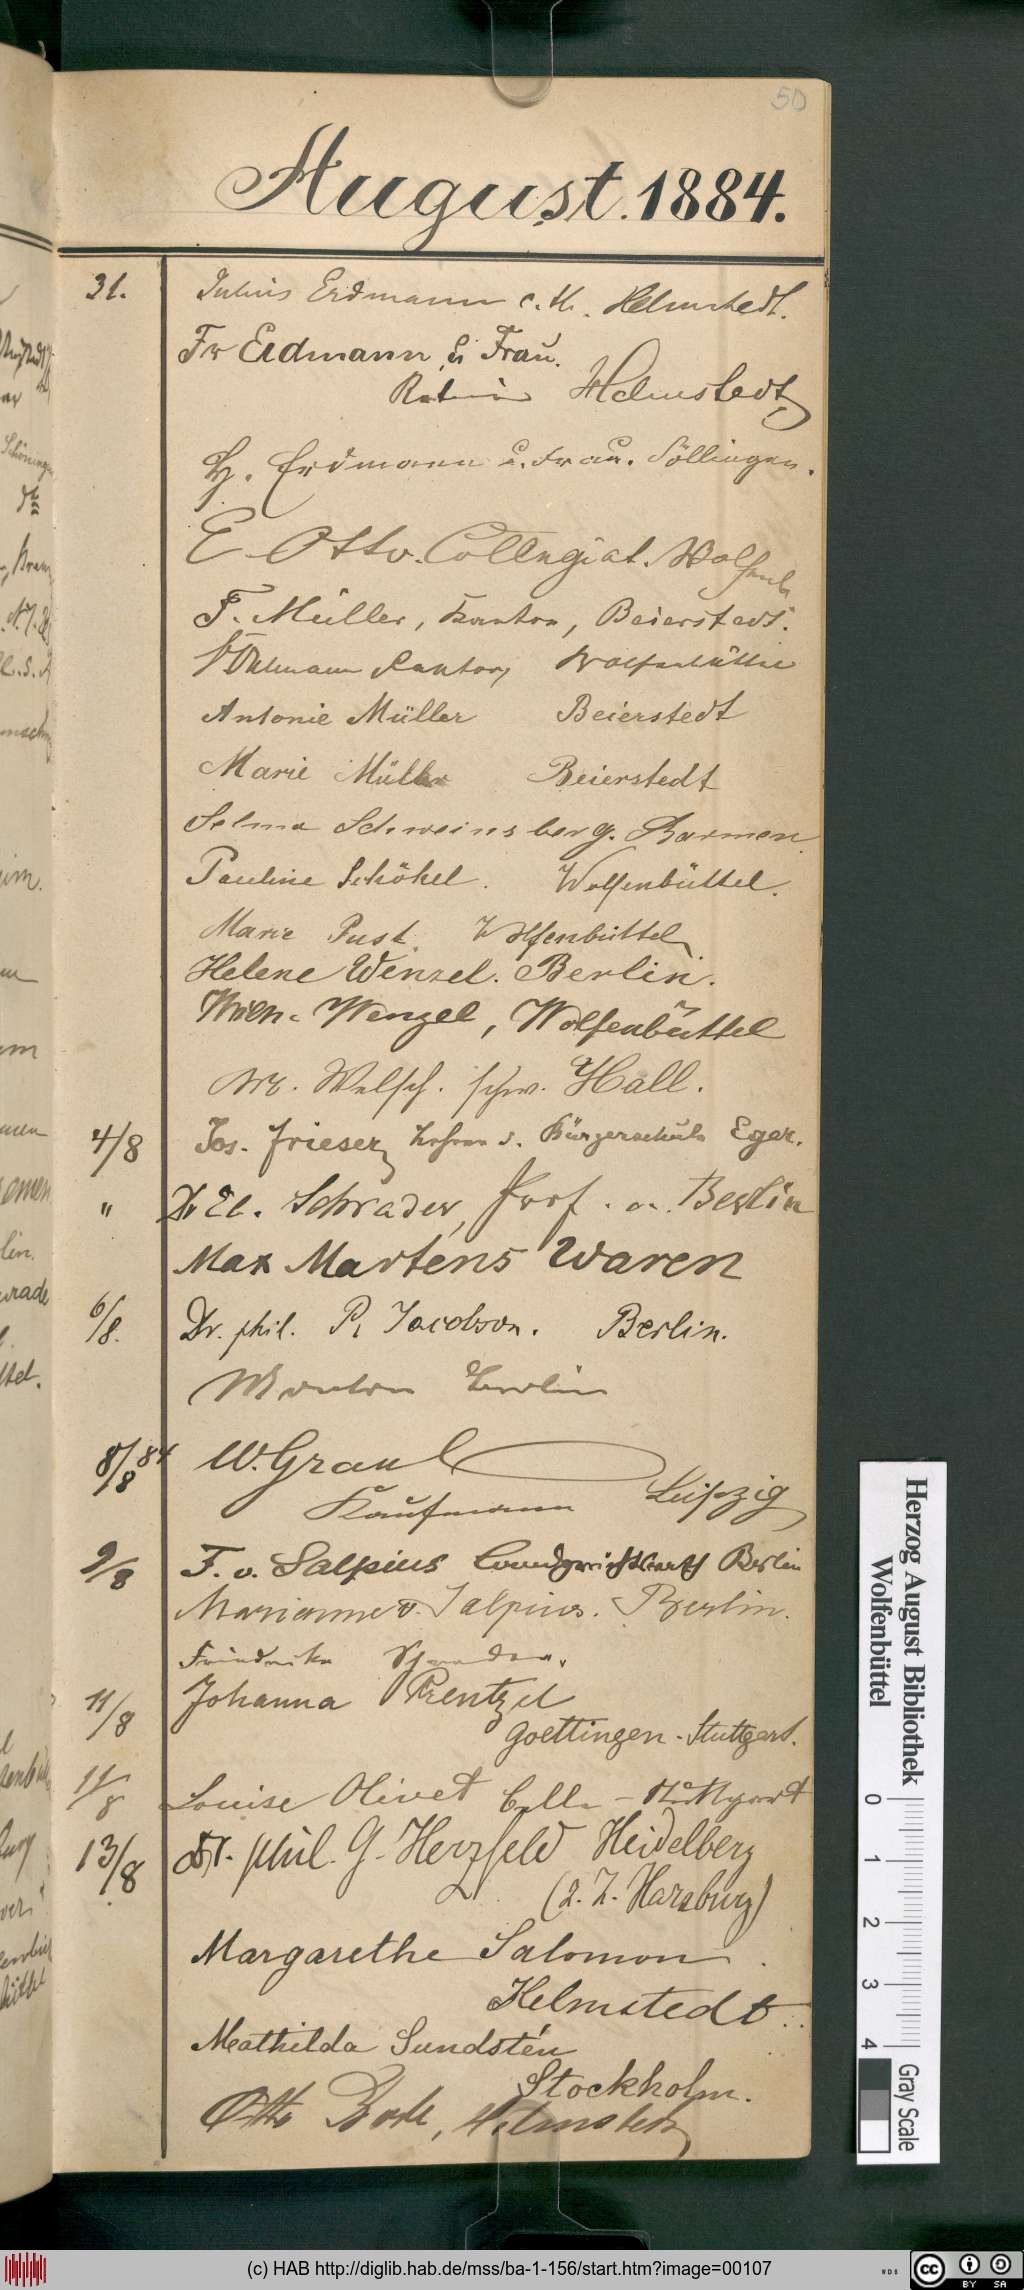 50
August. 1884.
31.
Julius Erdmann c. th. Helmstedt.
Fr Erdmann u Frau.
Helmstedt
H. Erdmann u. Frau. Söllingen.
E Otto. Collegiat. Wolfenb
F. Müller, Kantor, Beierstedt.
Kantor, Wolfenbüttel
Antonie Müller Beierstedt
Marie Müller Beierstedt
Selma Schweinsberg. Barmen.
Pauline Schökel. Wolfenbüttel.
Marie Pust. Wolfenbüttel
Helene Wenzel. Berlin.
Wenzel, Wolfenbüttel
Welsch. schw. Hall.
4/8
Jos. Frieser, Bürgerschule Eger.
"
Dr. Schrader, Prof. a. Berlin
Max Martens Waren
6/8.
Dr. phil. P. Jacobson. Berlin.
Berlin
8/8 84
W. Graul
Kaufmann Leipzig
9/8
F. v. Salpius Landgerichtsrath Berlin
Marianne v. Salpius. Berlin.
11/8
Johanna Prentzel
Goettingen - Stuttgart.
11/8
Louise Olivet Celle - Stuttgart
13/8
Dr. phil. G. Herzfeld Heidelberg
(z. Z. Harzburg)
Margarethe Salomon
Helmstedt.
Mathilda Sundstén
Stockholm.
Otto Bode, Helmstedt
Herzog August Bibliothek
Wolfenbüttel
0 1 2 3 4
Gray Scale
(c) HAB http://diglib.hab.de/mss/ba-1-156/start.htm?image=00107
WDB
cc BY SA